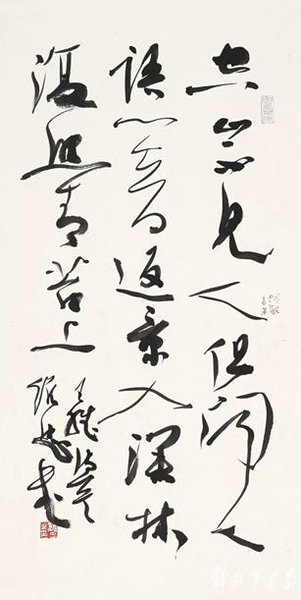 空山不見人但聞人
語響返景入深林
復照青苔上
王維詩
書